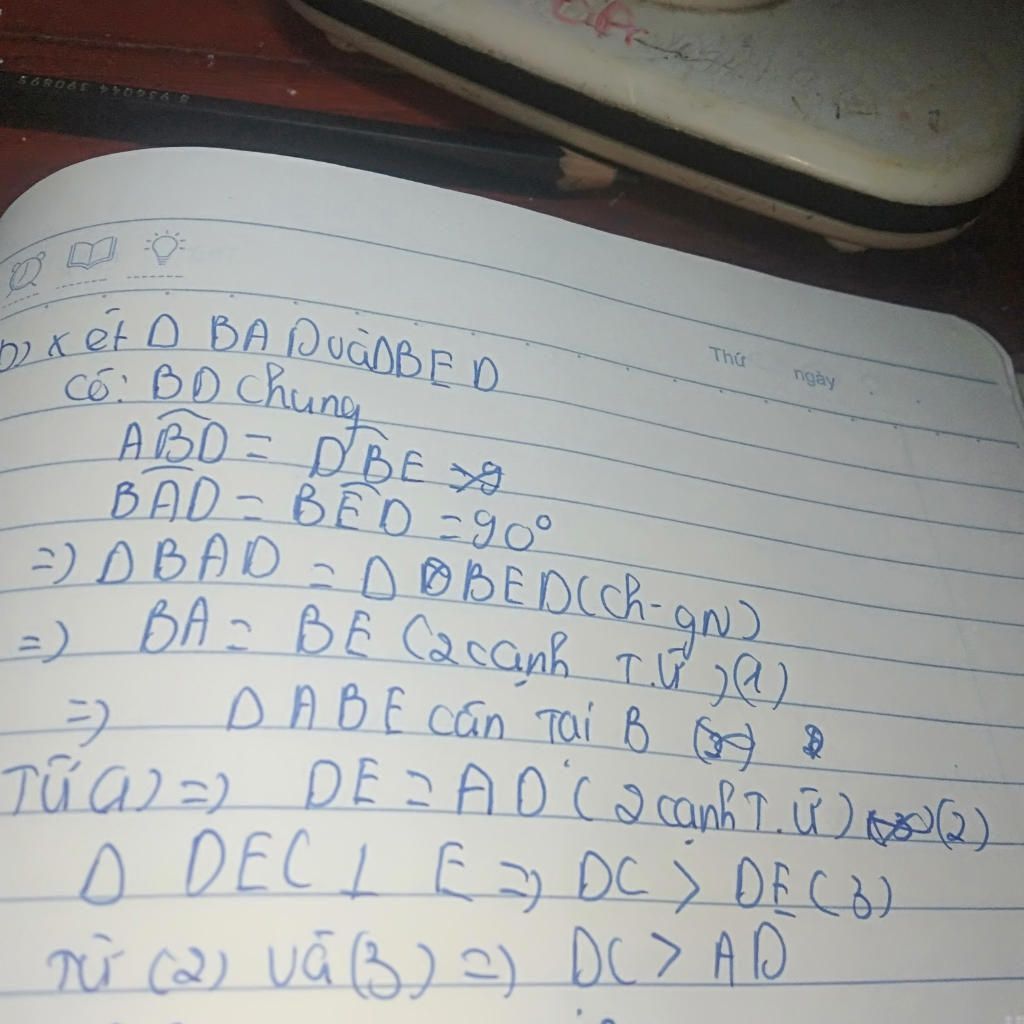 8 934044 390895
b) xét Δ BAD và ΔBED
Thứ ngày
có: BD chung
ABD = DBE
BAD = BED = 90°
=) Δ BAD = Δ BED (ch-gN)
=) BA = BE (2 cạnh T.Ư) (1)
=) Δ ABE cân Tại B
Từ (1) =) DE = AD (2 cạnh T.Ư) (2)
Δ DEC ⊥ E =) DC > DE (3)
Từ (2) và (3) =) DC > AD